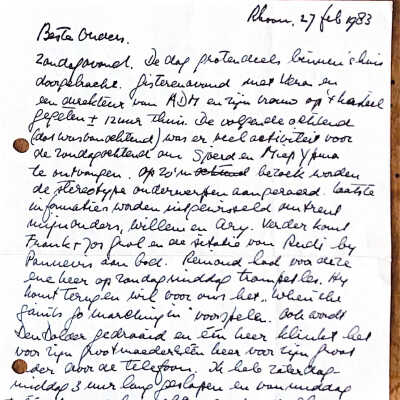 Rhoon, 27 feb 1983
Beste Ouders.
Zondagavond. De dag grotendeels binnen's huis
doorgebracht. Gisterenavond met Vera en
een direkteur van ADM en zijn vrouw op 't kasteel
gegeten ± 12 uur thuis. De volgende ochtend
(dat was vanochtend) was er veel activiteit voor
de zondagochtend om Sjoerd en Miep Ypma
te ontvangen. Op zo'n bezoek worden
de stereotype onderwerpen aangeraerd. Laatste
informaties worden uitgewisseld omtrent
mijn ouders, Willem en Ary. Verder komt
Frank + Jos Grol en de situatie van Rudi by
Panneurs aan bod. Remond had voor deze
ene keer op zondagmiddag trompetles. Hy
komt terug en wil voor ons het "When the
saints go marching in" voorspelen. Ook wordt
Den Dolder gedraaid en één keer klinkt het
voor zijn grootmoeder één keer voor zijn groot
vader door de telefoon. Ik heb zaterdag
middag 3 uur lang geslapen en vanmiddag